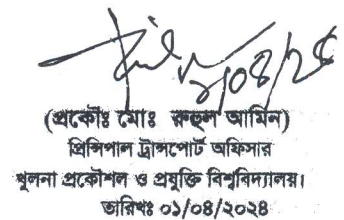 (প্রকৌঃ মোঃ রুহুল আমিন)
প্রিন্সিপাল ট্রান্সপোর্ট অফিসার
খুলনা প্রকৌশল ও প্রযুক্তি বিশ্ববিদ্যালয়।
তারিখঃ ০১/০৪/২০২৪